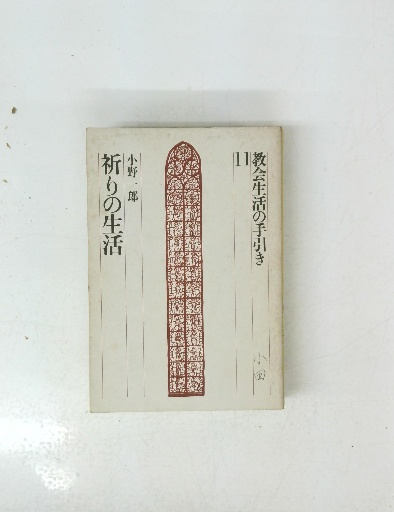 教会生活の手引き
11
小野一郎
祈りの生活
小田